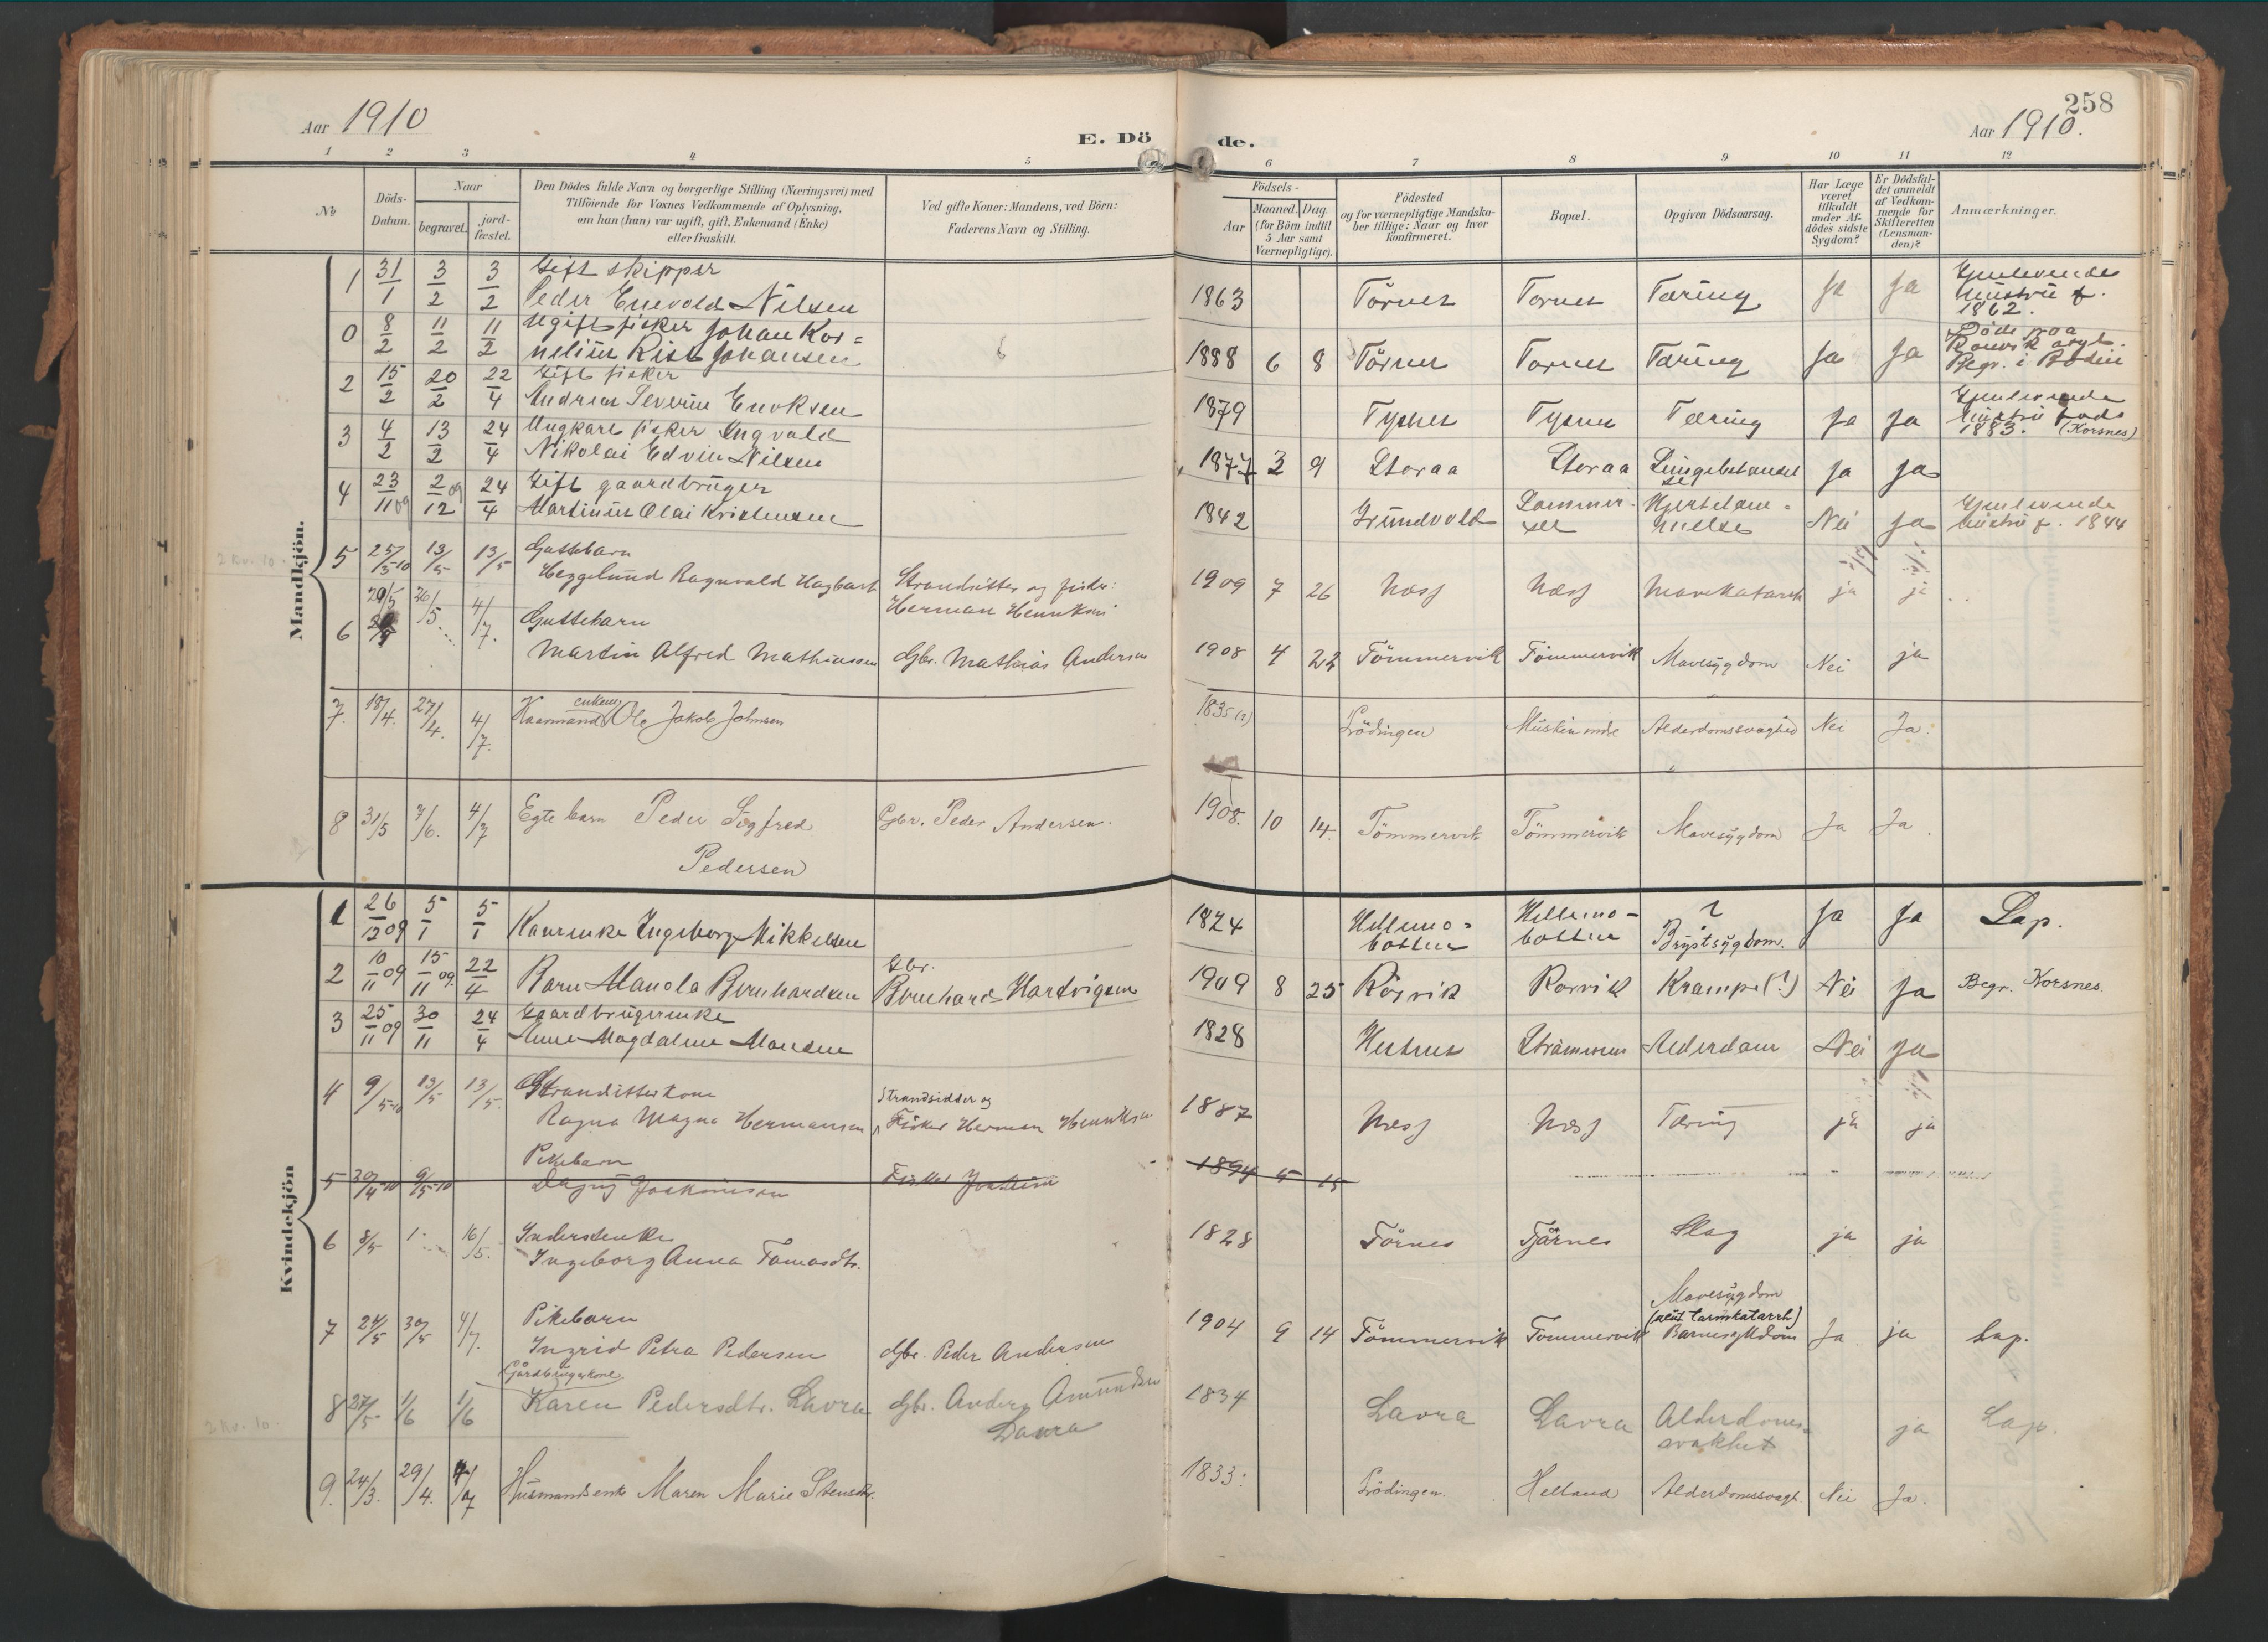 258
Aar 1910
Aar 1910.
E. Dö de.
1 2 3 4 5 6 7 8 9 10 11 12
No
Döds-
Datum.
Naar
begravet.
jord-
fæstet.
Den Dödes fulde Navn og borgerlige Stilling (Næringsvei) med
Tilföiende for Voxnes Vedkommende af Oplysning,
om han (hun) var ugift, gift, Enkemand (Enke)
eller fraskilt.
Ved gifte Koner: Mandens, ved Börn:
Faderens Navn og Stilling.
Födsels-
Aar
Maaned. Dag.
(for Börn indtil
5 Aar samt
Værnepligtige).
Födested
og for værnepligtige Mandska-
ber tillige: Naar og hvor
konfirmeret.
Bopæl.
Opgiven Dödsaarsag.
Har Læge
været
tilkaldt
under Af-
dödes sidste
Sygdom?
Er Dödsfal-
det anmeldt
af Vedkom-
mende for
Skifteretten
(Lensman-
den)?
Anmærkninger.
Mandkjön.
1 31/1 3/2 3/2 Gift skipper
Peder Enevold Nilsen 1863 Törnes Tornes Tæring Ja Ja Gjenlevende
hustru f.
1862.
0 8/2 11/2 11/2 Ugift fisker Johan Kor=
nelius Rist Johansen 1888 6 8 Törnes Tornes Tæring Ja Ja Döde paa
Begr. i Bodin
2 15/2 20/2 22/4 Gift fisker
Andreas Severin Enoksen 1879 Tysnes Tysnes Tæring Ja Ja Gjenlevende
hustru föds
1883. (Korsnes)
3 4/2 13/2 24/4 Ungkarl fisker Ingvald
Nikolai Edvin Nilsen 1877 3 9 Storaa Storaa Ja Ja
4 23/11 09 2/12 09 24/4 Gift gaardbruger
Martinus Olai Kristensen 1842 Grundvold Nei Ja Gjenlevende
hustru f. 1844
5 25/3-10 13/5 13/5 Guttebarn
Heggelund Ragnvald Hagbart Strandsitter og fisker:
Herman Henriksen 1909 7 26 Næss Næss Mavekatarrh ja ja
6 20/5 26/5 4/7. Guttebarn
Martin Alfred Mathiassen Gbr. Mathias Andersen 1908 4 22 Tömmervik Tömmervik Mavesygdom Nei ja
7. 18/4. 27/4. 4/7. enkem.
Ole Jakob Johnsen 1835 (?) Lödingen Alderdomssvaghed Nei Ja.
8 31/5 7/6. 4/7 Egte barn Peder Sigfred
Pedersen Gbr. Peder Andersen. 1908. 10 14. Tömmervik Tömmervik Mavesygdom Ja Ja.
Kvindekjön
1 26/12 09 5/1 5/1 Kaarenke Ingeborg Mikkelsen 1824 Hellemo=
botten Hellemo-
botten ?
Brystsygdom. Ja Ja Lap.
2 10/11 09 15/11 09. 22/4 Barn Manola Bernhardsen Gbr.
Bernhard Hartvigsen 1909 8 25 Rörvik Rorvik Krampe(?) Nei Ja Begr. Korsnes.
3 25/11 09 30/11 24/4 Gaardbrugerenke
Anne Magdalene Monsen 1828 Alderdom Nei Ja
4 9/5-10 13/5 13/5. Strandsitterkone
Ragna Magna Hermansen Strandsidder og
Fisker Herman Henriksen 1887 Næss Næss Tæring ja ja
5 30/4-10 9/5-10 Pikebarn
Dagny Joakimsen Fisker Joakim 1894 5 15
6 8/5 16/5. Inderstenke
Ingeborg Anna Tomasdtr. 1828 Törnes Tjårnes Slag ja ja
7 24/5 30/5 4/7. Pikebarn
Ingrid Petra Pedersen Gbr. Peder Andersen 1904 9 14 Tömmervik Tömmervik Mavesygdom
(acut tarmkatarrh)
Barnesygdom Ja ja Lap.
8 27/5 1/6 1/6 Gårdbrugerkone
Karen Pedersdtr. Lavra Gbr. Anders Amundsen
Lavra 1834 Lavra Lavra Alderdoms-
svakhet ja Lap.
9. 24/3. 29/4. 4/7 Husmandsenke Maren Marie Stensdtr. 1833. Lödingen. Helland Alderdomssvagh. Nei Ja.
2 Kv. 10.
2 Kv. 10.